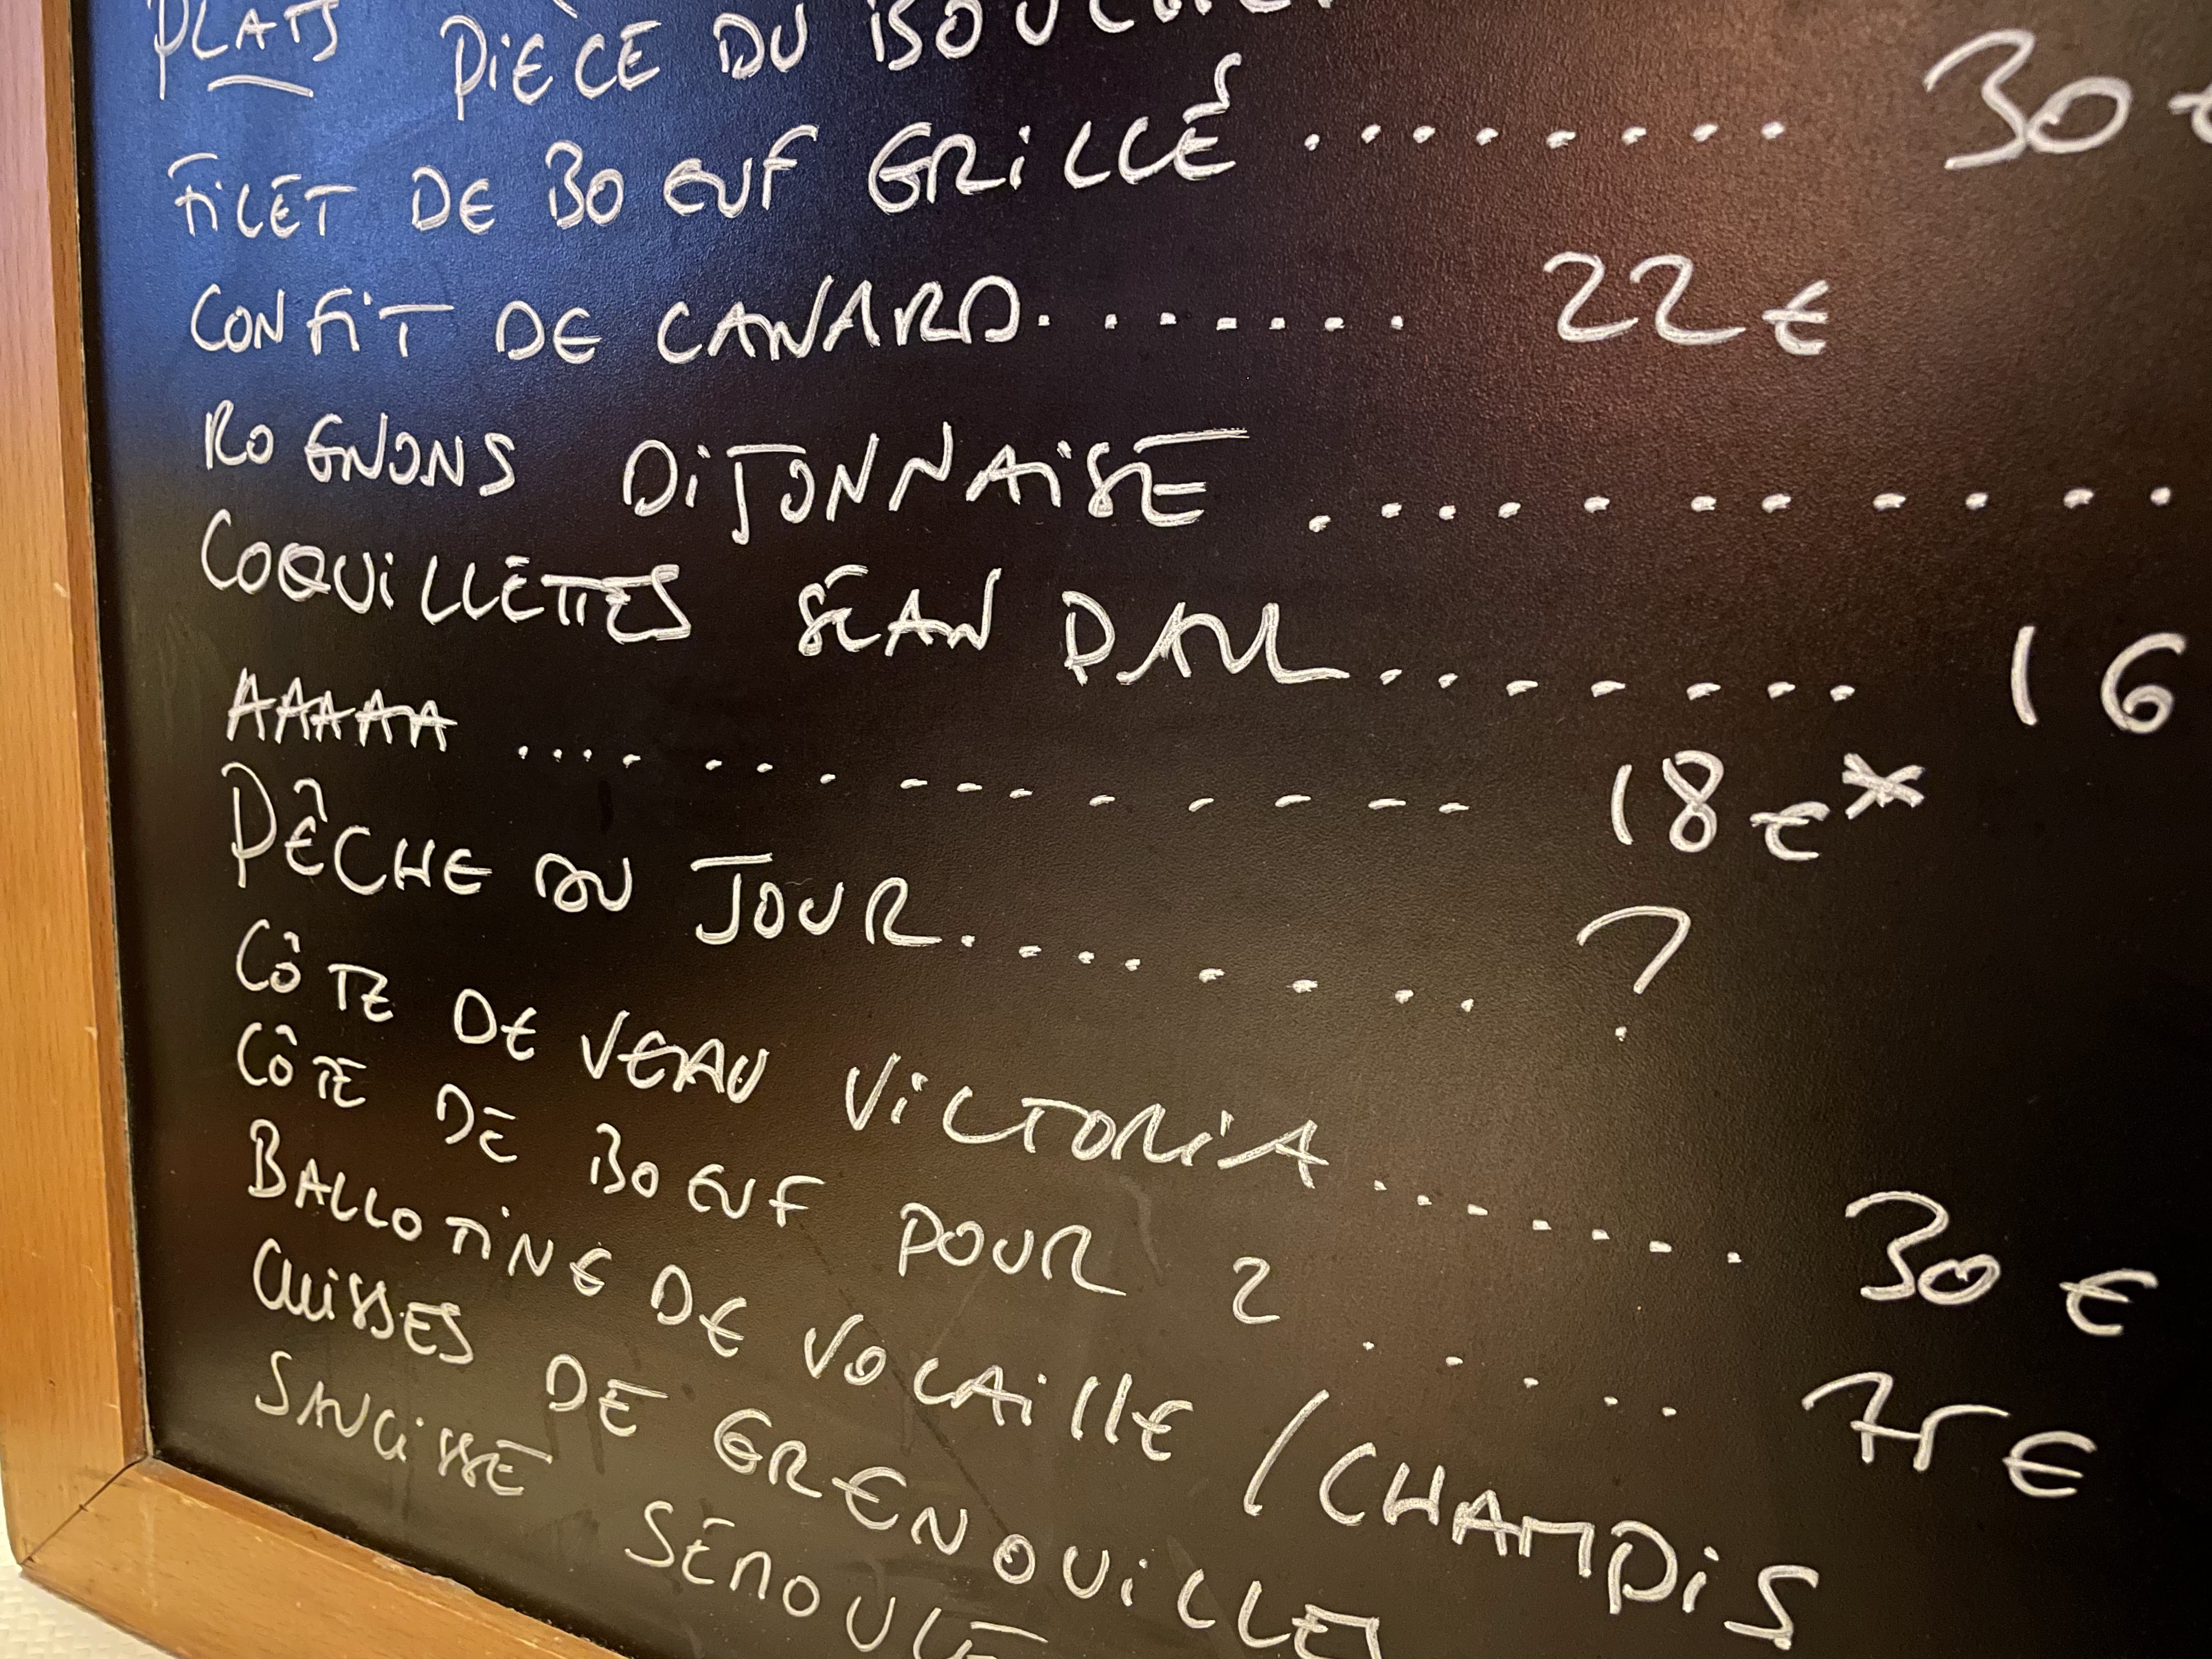 PLATS PIÈCE DU BOUCHER
FILET DE BOEUF GRILLÉ ......... 30 €
CONFIT DE CANARD....... 22 €
ROGNONS DIJONNAISE ..........
COQUILLETTES SEAN PAUL........ 16
AAAAA ............... 18 €*
PÊCHE DU JOUR........ ?
CÔTE DE VEAU VICTORIA ....... 30 €
CÔTE DE BOEUF POUR 2 ..... 75 €
BALLOTINE DE VOLAILLE / CHAMPIS
CUISSES DE GRENOUILLES
SAUCISSE SEMOULE